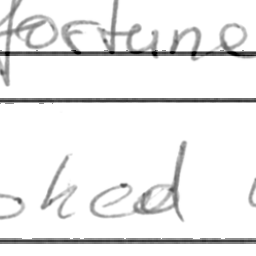 fortune
oked